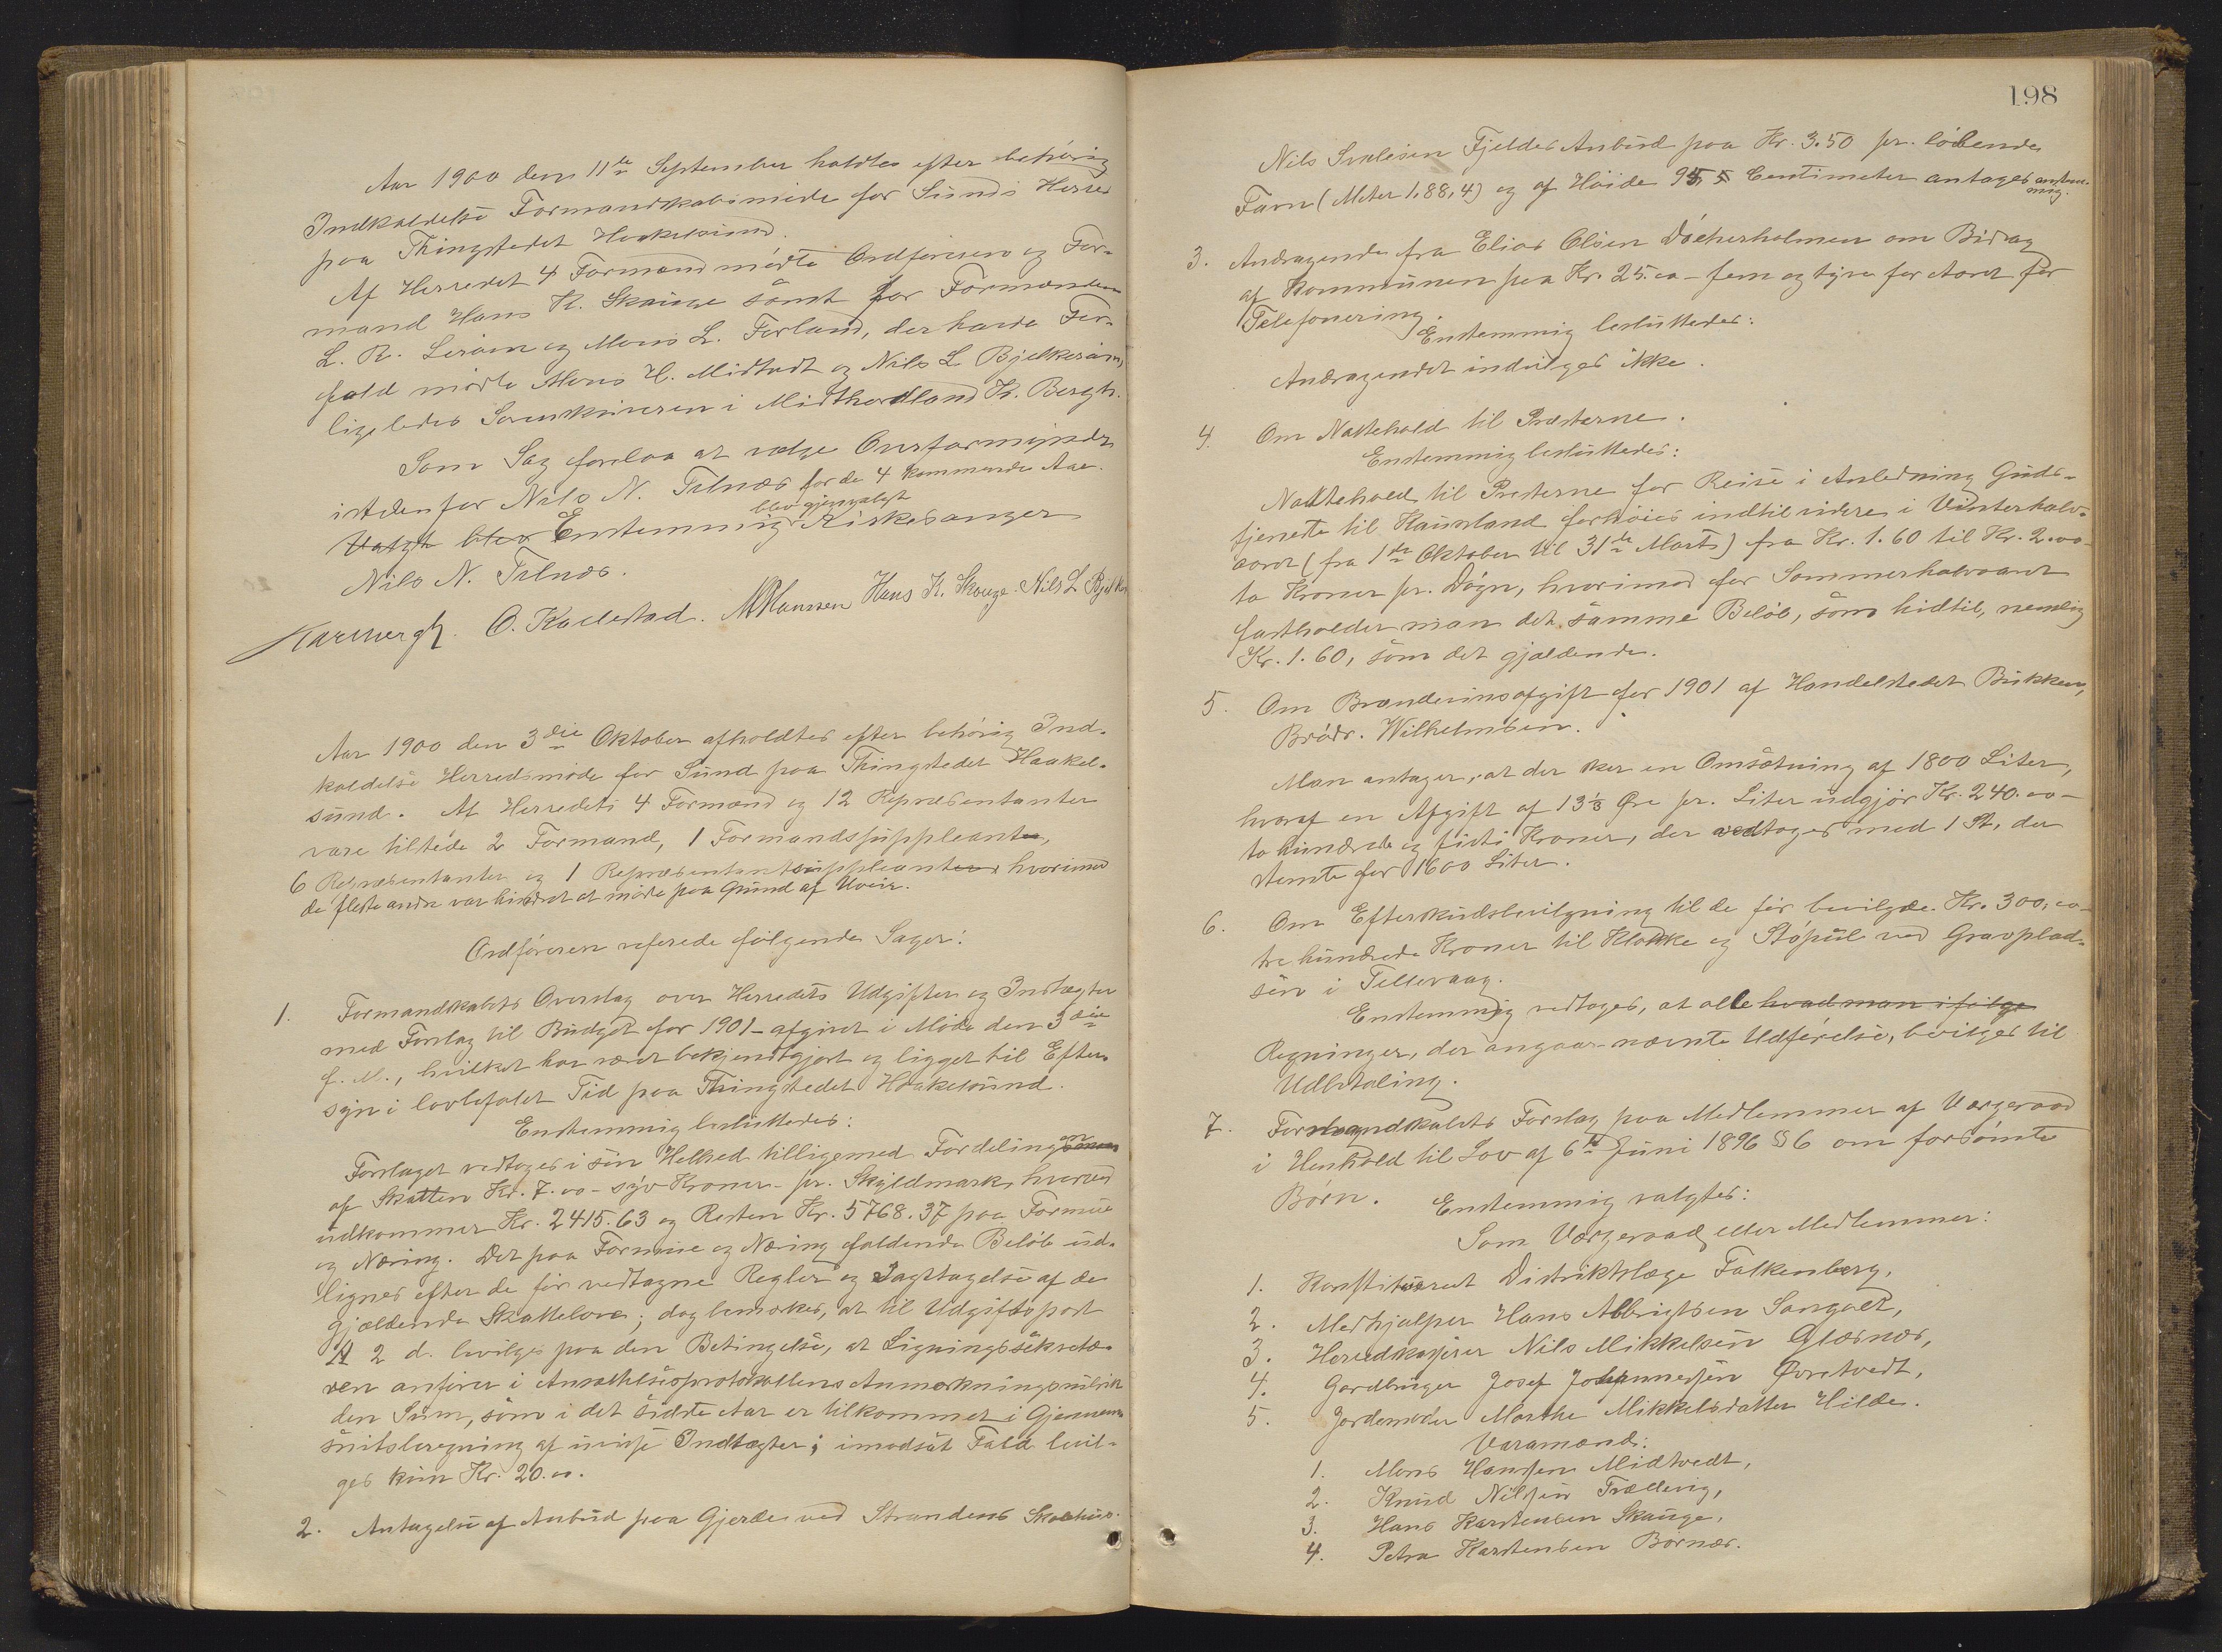 Aar 1900 den 11te September holdtes efter behørig
Indkaldelse Formandskabsmøde for Sunds Herred
paa Thingstedet Haakelsund.
Af Herredet 4 Formænd mødte Ordføreren og For-
mand Hans K. Skauge samt for Formændene
L. R. Lerøen og Mons L. Førland, der havde For-
fald mødte Mons H. Midtvedt og Nils L. Bjelkerøen,
ligeledes Sorenskriveren i Midthordland K. Bergh.
Som Sag forelaa at vælge Overformynder
istedenfor Nils N. Telnæs for de 4 kommende Aar.
Valgt blev Enstemmig blev gjenvalgt Kirkesanger
Nils N. Telnæs.
Kar Bergh. O. Kallestad. M Hanssen Hans K. Skouge. Nils L Bjelker
Aar 1900 den 3die Oktober afholdtes efter behørig Ind-
kaldelse Herredsmøde for Sund paa Thingstedet Haakel-
sund. Af Herredets 4 Formænd og 12 Repræsentanter
vare tilstede 2 Formænd, 1 Formandssuppleant,
6 Repræsentanter og 1 Repræsentantsuppleant hvorimod
de fleste andre var hindret at møde paa Grund af Uveir.
Ordføreren refererede følgende Sager:
1. Formandskabets Overslag over Herredets Udgifter og Indtægter
med Forslag til Budget for 1901 - afgivet i Møde den 3die
f. M., hvilket har været bekjendtgjort og ligget til Efter-
syn i lovbefalet Tid paa Thingstedet Haakelsund.
Enstemmig besluttedes:
Forslaget vedtages i sin Helhed tilligemed Fordelingen
af Skatten Kr. 7.00 - syv Kroner - pr. Skyldmark, hvorved
udkommer Kr. 2415.63 og Resten Kr. 5768.37 paa Formue
og Næring. Det paa Formue og Næring faldende Beløb ud-
lignes efter de før vedtagne Regler og Iagttagelse af de
gjældende Skattelove; dog bemærkes, at til Udgiftspost
A 2 d. bevilges paa den Betingelse, at Ligningssekretæ-
ren anfører i Ansættelsesprotokollens Anmærkningsrubrik
den Sum, som i det sidste Aar er tilkommet i Gjennem-
snitsberegning af uvisse Indtægter; i modsat Fald bevil-
ges kun Kr. 20.00.
2. Antagelse af Anbud paa Gjerde ved Strandens Skolehus.
198
Nils Fjeldes Anbud paa Kr. 3.50 pr. løbende
Favn (Meter 1,88,4) og af Høide 95 Centimeter antages enstem-
mig.
3. Andragende fra Elias Olsen Døcherholmen om Bidrag
af Kommunen paa Kr. 25.00 - fem og tyve for Aaret for
Telefonering.
Enstemmig besluttedes:
Andragendet indvilges ikke.
4. Om Nattehold til Præsterne.
Enstemmig besluttedes:
Nattehold til Presterne for Reise i Anledning Guds-
tjeneste til Kausland forhøies indtil videre i Vinterhalv-
aaret (fra 1ste Oktober til 31te Marts) fra Kr. 1.60 til Kr. 2.00 -
to Kroner pr. Døgn, hvorimod for Sommerhalvaaret
fastholder man det samme Beløb, som hidtil, nemlig
Kr. 1.60, som det gjældende.
5. Om Brændevinsafgift for 1901 af Handelstedet Bukken,
Brødr. Wilhelmsen.
Man antager, at der sker en Omsætning af 1800 Liter,
hvoraf en Afgift af 13 1/3 Øre pr. Liter udgjør Kr. 240.00 -
to hundrede og firti Kroner, der vedtages med 1 St, der
stemte for 1600 Liter.
6. Om Efterskudsbevilgning til de før bevilgede Kr. 300,00 -
tre hundrede Kroner til Klokke og Støpul ved Gravplad-
sen i Tellevaag.
Enstemmig vedtages, at alle hvad man ifølge
Regninger, der angaar nævnte Udførelse, bevilges til
Udbetaling.
7. Formandskabets Forslag paa Medlemmer af Værgeraad
i Henhold til Lov af 6te Juni 1896 § 6 om forsømte
Børn. Enstemmig valgtes:
Som Værgeraad eller Medlemmer:
1. Konstitueret Distriktslæge Falkenberg,
2. Medhjælper Hans Albrigtsen Sangolt,
3. Herredskasserer Nils Mikkelsen Glæsnæs,
4. Gardbruger Josef Johannessen Øvretvedt,
5. Jordemoder Marthe Mikkelsdatter Hilde.
Varamænd:
1. Mons Hanssen Midtvedt,
2. Knud Nilssen Trællevig,
3. Hans Karstensen Skauge,
4. Petra Karstensen Børnæs.